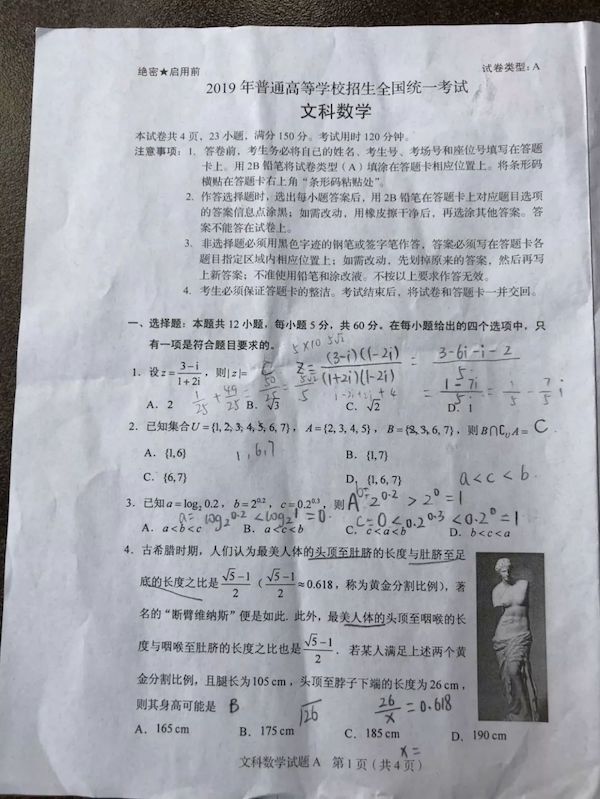 绝密★启用前
试卷类型：A
2019 年普通高等学校招生全国统一考试
文科数学
本试卷共 4 页，23 小题，满分 150 分。考试用时 120 分钟。
注意事项：1. 答卷前，考生务必将自己的姓名、考生号、考场号和座位号填写在答题
卡上。用 2B 铅笔将试卷类型（A）填涂在答题卡相应位置上。将条形码
横贴在答题卡右上角“条形码粘贴处”。
2. 作答选择题时，选出每小题答案后，用 2B 铅笔在答题卡上对应题目选项
的答案信息点涂黑；如需改动，用橡皮擦干净后，再选涂其他答案。答
案不能答在试卷上。
3. 非选择题必须用黑色字迹的钢笔或签字笔作答，答案必须写在答题卡各
题目指定区域内相应位置上；如需改动，先划掉原来的答案，然后再写
上新答案；不准使用铅笔和涂改液。不按以上要求作答无效。
4. 考生必须保证答题卡的整洁。考试结束后，将试卷和答题卡一并交回。
一、选择题：本题共 12 小题，每小题 5 分，共 60 分。在每小题给出的四个选项中，只
有一项是符合题目要求的。
5×10 5√2
1. 设 z = (3-i)/(1+2i)，则|z|= C
z = (3-i)(1-2i)/(1+2i)(1-2i) = (3-6i-i-2)/5
1/25 + 49/25 = 50/25 = 5√2/5
1-2i+2i+4
= (1-7i)/5 = 1/5 - 7/5 i
A. 2 B. √3 C. √2 D. 1
2. 已知集合U = {1, 2, 3, 4, 5, 6, 7}，A = {2, 3, 4, 5}，B = {2, 3, 6, 7}，则 B∩∁UA = C
A. {1,6} 1,6,7 B. {1,7}
C. {6,7} D. {1, 6, 7} a<c<b
3. 已知 a = log₂ 0.2，b = 2^0.2，c = 0.2^0.3，则 A b=2^0.2 > 2^0 = 1
a= log₂0.2 < log₂1 = 0. c=0<0.2^0.3<0.2^0=1
A. a<b<c B. a<c<b C. c<a<b D. b<c<a
4. 古希腊时期，人们认为最美人体的头顶至肚脐的长度与肚脐至足
底的长度之比是 (√5-1)/2（(√5-1)/2 ≈ 0.618，称为黄金分割比例），著
名的“断臂维纳斯”便是如此. 此外，最美人体的头顶至咽喉的长
度与咽喉至肚脐的长度之比也是 (√5-1)/2．若某人满足上述两个黄
金分割比例，且腿长为 105 cm，头顶至脖子下端的长度为 26 cm，
则其身高可能是 B √26 26/x = 0.618
A. 165 cm B. 175 cm C. 185 cm D. 190 cm
x=
文科数学试题 A 第 1 页（共 4 页）